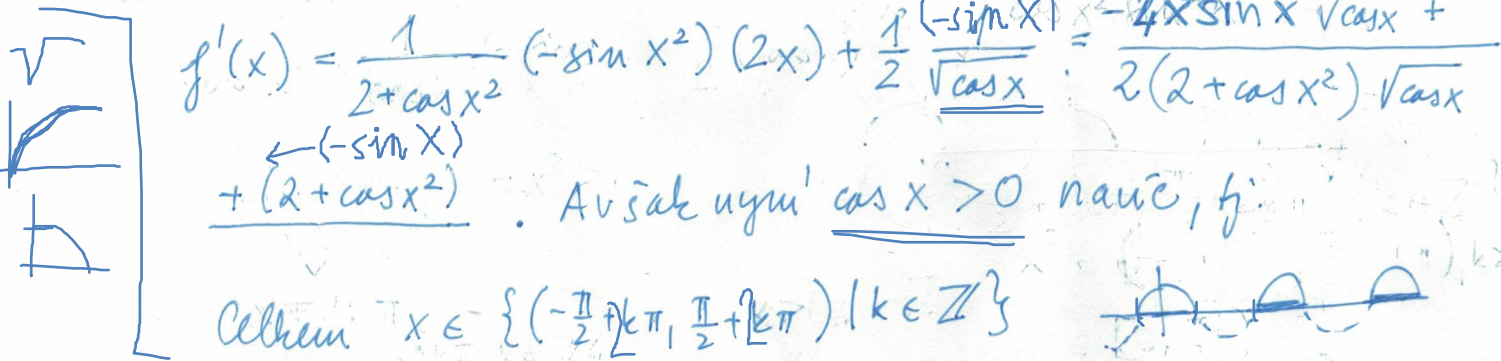 √
f'(x) = 1/(2+cos x²) (-sin x²) (2x) + 1/2 (-sin x)/√cos x = (-4x sin x √cos x +)/(2(2+cos x²) √cos x)
← (-sin x)
+ (2 + cos x²) . Avšak nyní cos x > 0 navíc, tj.
Celkem x ∈ {(-π/2 + 2kπ, π/2 + 2kπ) | k ∈ ℤ}